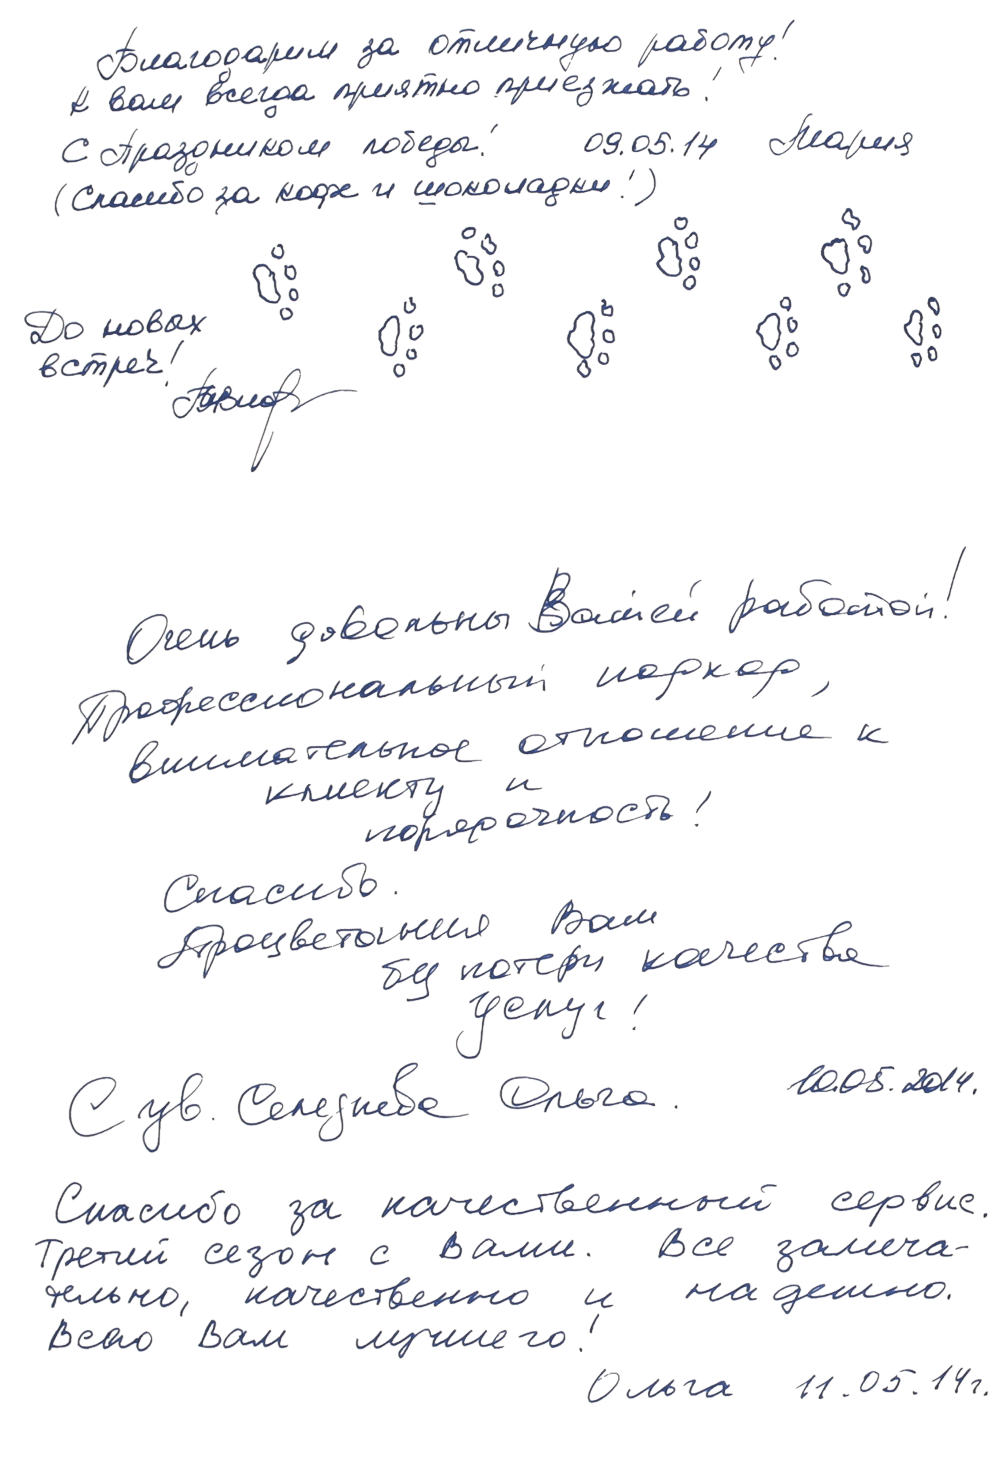 Благодарим за отличную работу!
К вам всегда приятно приезжать!
С Праздником победы! 09.05.14 Мария
(Спасибо за кофе и шоколадки!)
До новых
встреч!
Очень довольны Вашей работой!
Профессиональный персонал,
внимательное отношение к
клиенту и
порядочность!
Спасибо.
Процветания Вам
без потери качества
услуг!
С ув. Селезнева Ольга. 10.05.2014.
Спасибо за качественный сервис.
Третий сезон с Вами. Все замеча-
тельно, качественно и надежно.
Всего Вам лучшего!
Ольга 11.05.14г.